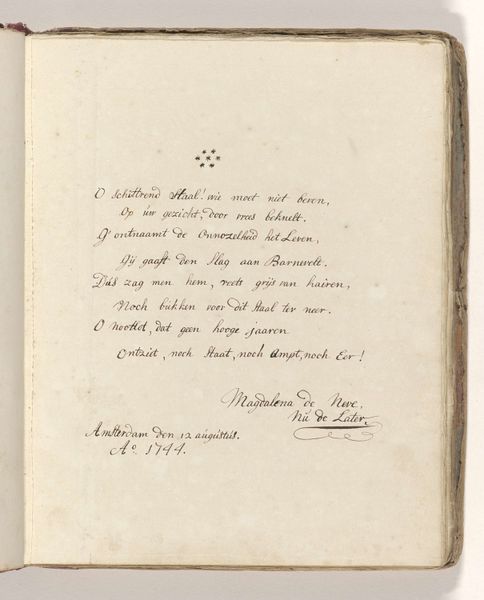 O schittrend Staal! wie moet niet beven,
Op uw gezicht, door vrees beknelt.
G' ontnaamt de Onnozelheid het Leven,
Gij gaaft den Slag aan Barnevelt.
Dús zag men hem, reets grijs van hairen,
Noch bukken voor dit Staal ter neer.
O Noodlot, dat geen hooge jaaren
Ontziet, noch Staat, noch Ampt, noch Eer!
Magdalena de Neve,
Nú de Later.
Amsterdam den 12 augustus.
Aº. 1744.